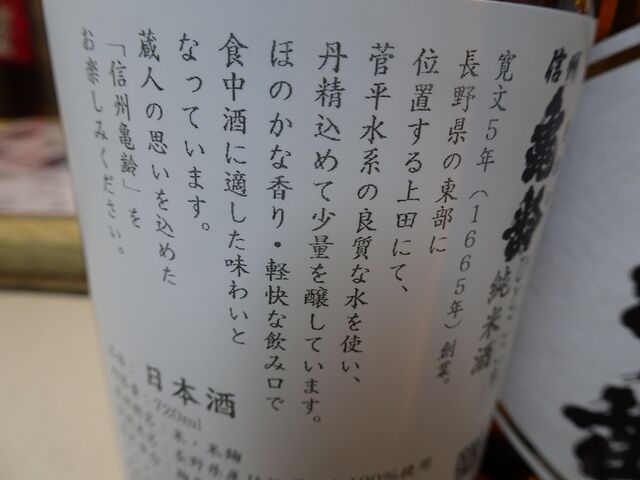 信州
亀齢
純米酒
寛文5年（1665年）創業。
長野県の東部に
位置する上田にて、
菅平水系の良質な水を使い、
丹精込めて少量を醸しています。
ほのかな香り・軽快な飲み口で
食中酒に適した味わいと
なっています。
蔵人の思いを込めた
「信州亀齢」を
お楽しみください。
日本酒
720ml
米・米麹
長野県産
100%使用